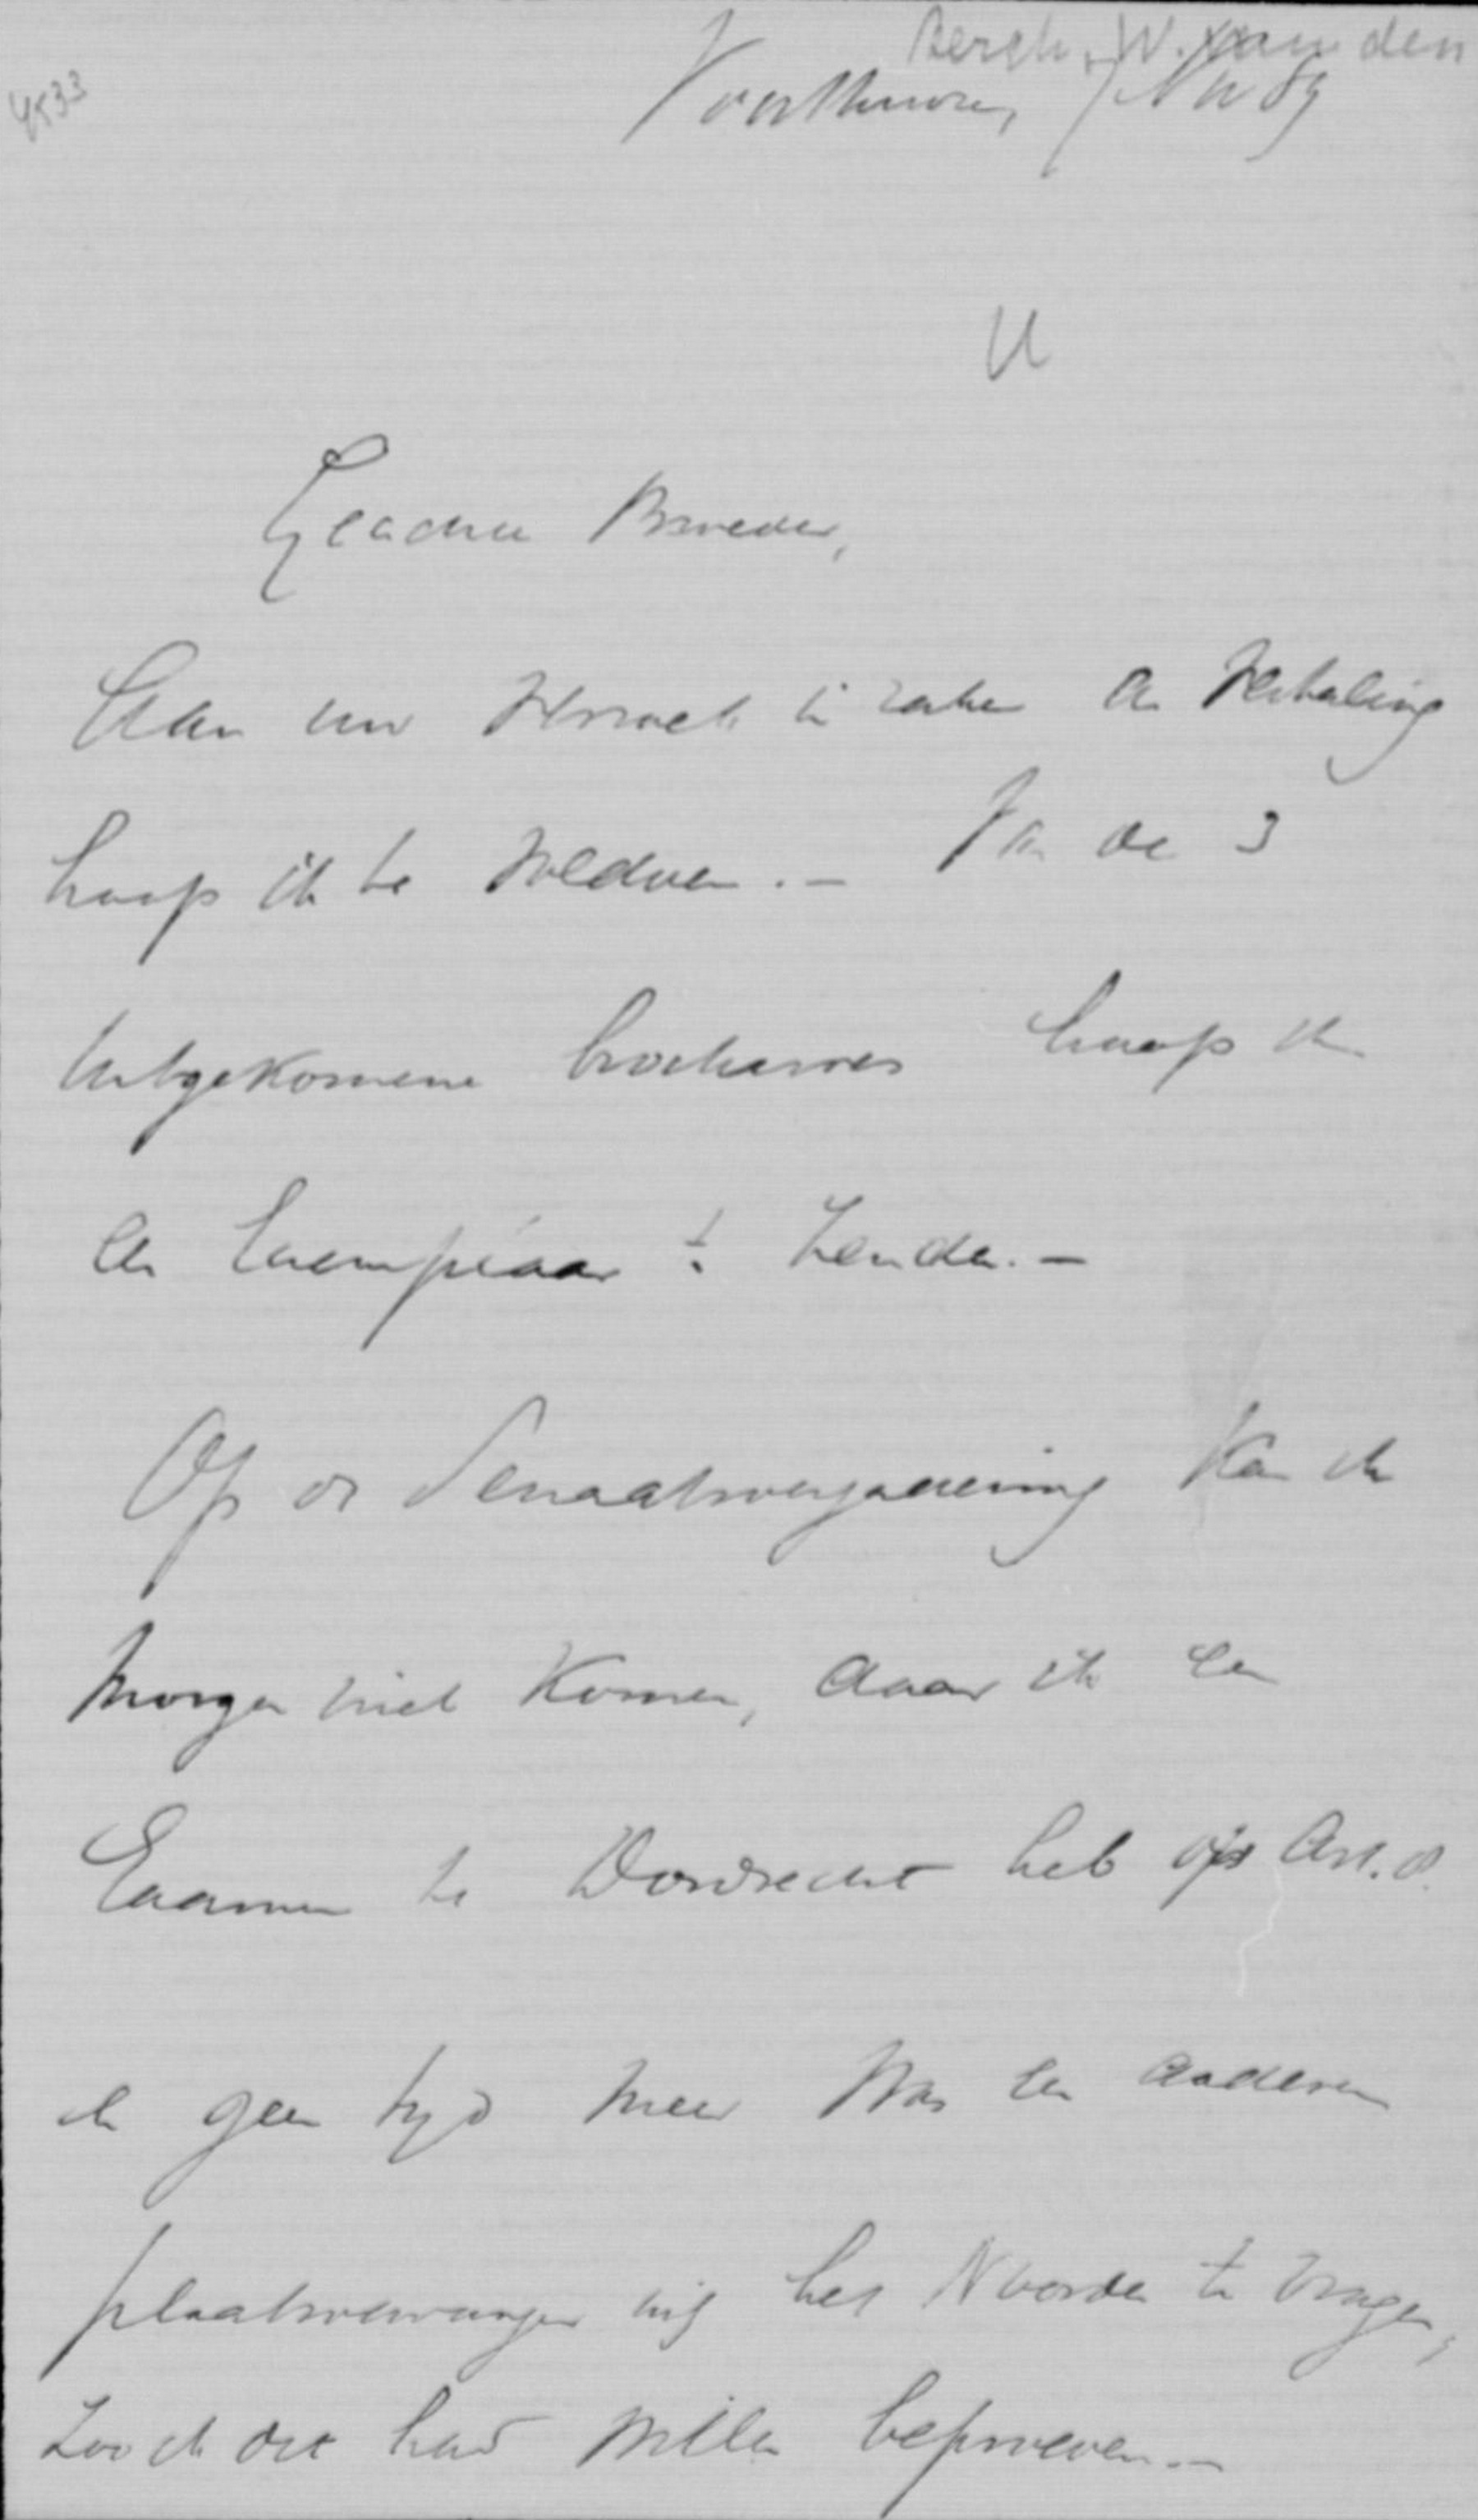 4533
Berch, W. van den
Voorthuizen, 7 Nov 89
U
Geachte Broeder,
Aan uw verzoek in zake de Vertaling
hoop ik te voldoen. — Van de 3
uitgekomene brochures hoop ik
een Exemplaar te zenden. —
Op de Senaatsvergadering kan ik
morgen niet komen, daar ik een
Examen te Dordrecht heb op Art. 8.
en geen tyd meer was een anderen
plaatsvervanger uit het Noorden te vragen,
zoo ik dit had willen beproeven. —